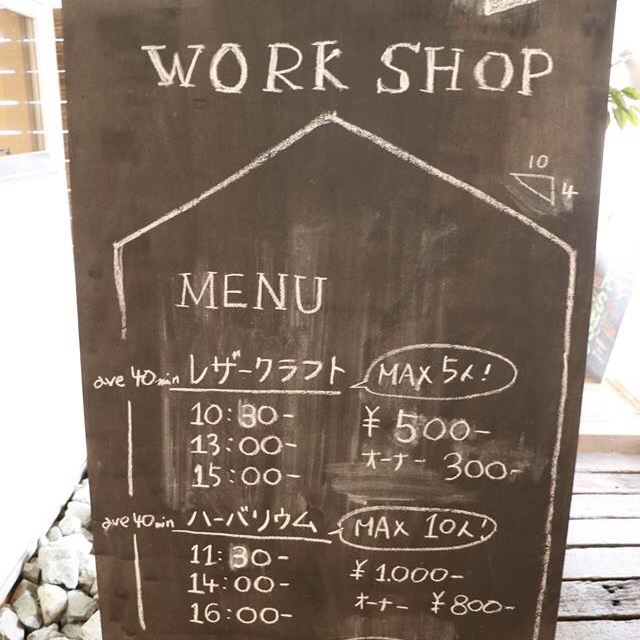 WORK SHOP
10
4
MENU
ave 40min レザークラフト MAX 5人!
10:30-
13:00-
15:00-
¥500-
オーナー 300-
ave 40min ハーバリウム MAX 10人!
11:30-
14:00-
16:00-
¥1.000-
オーナー ¥800-